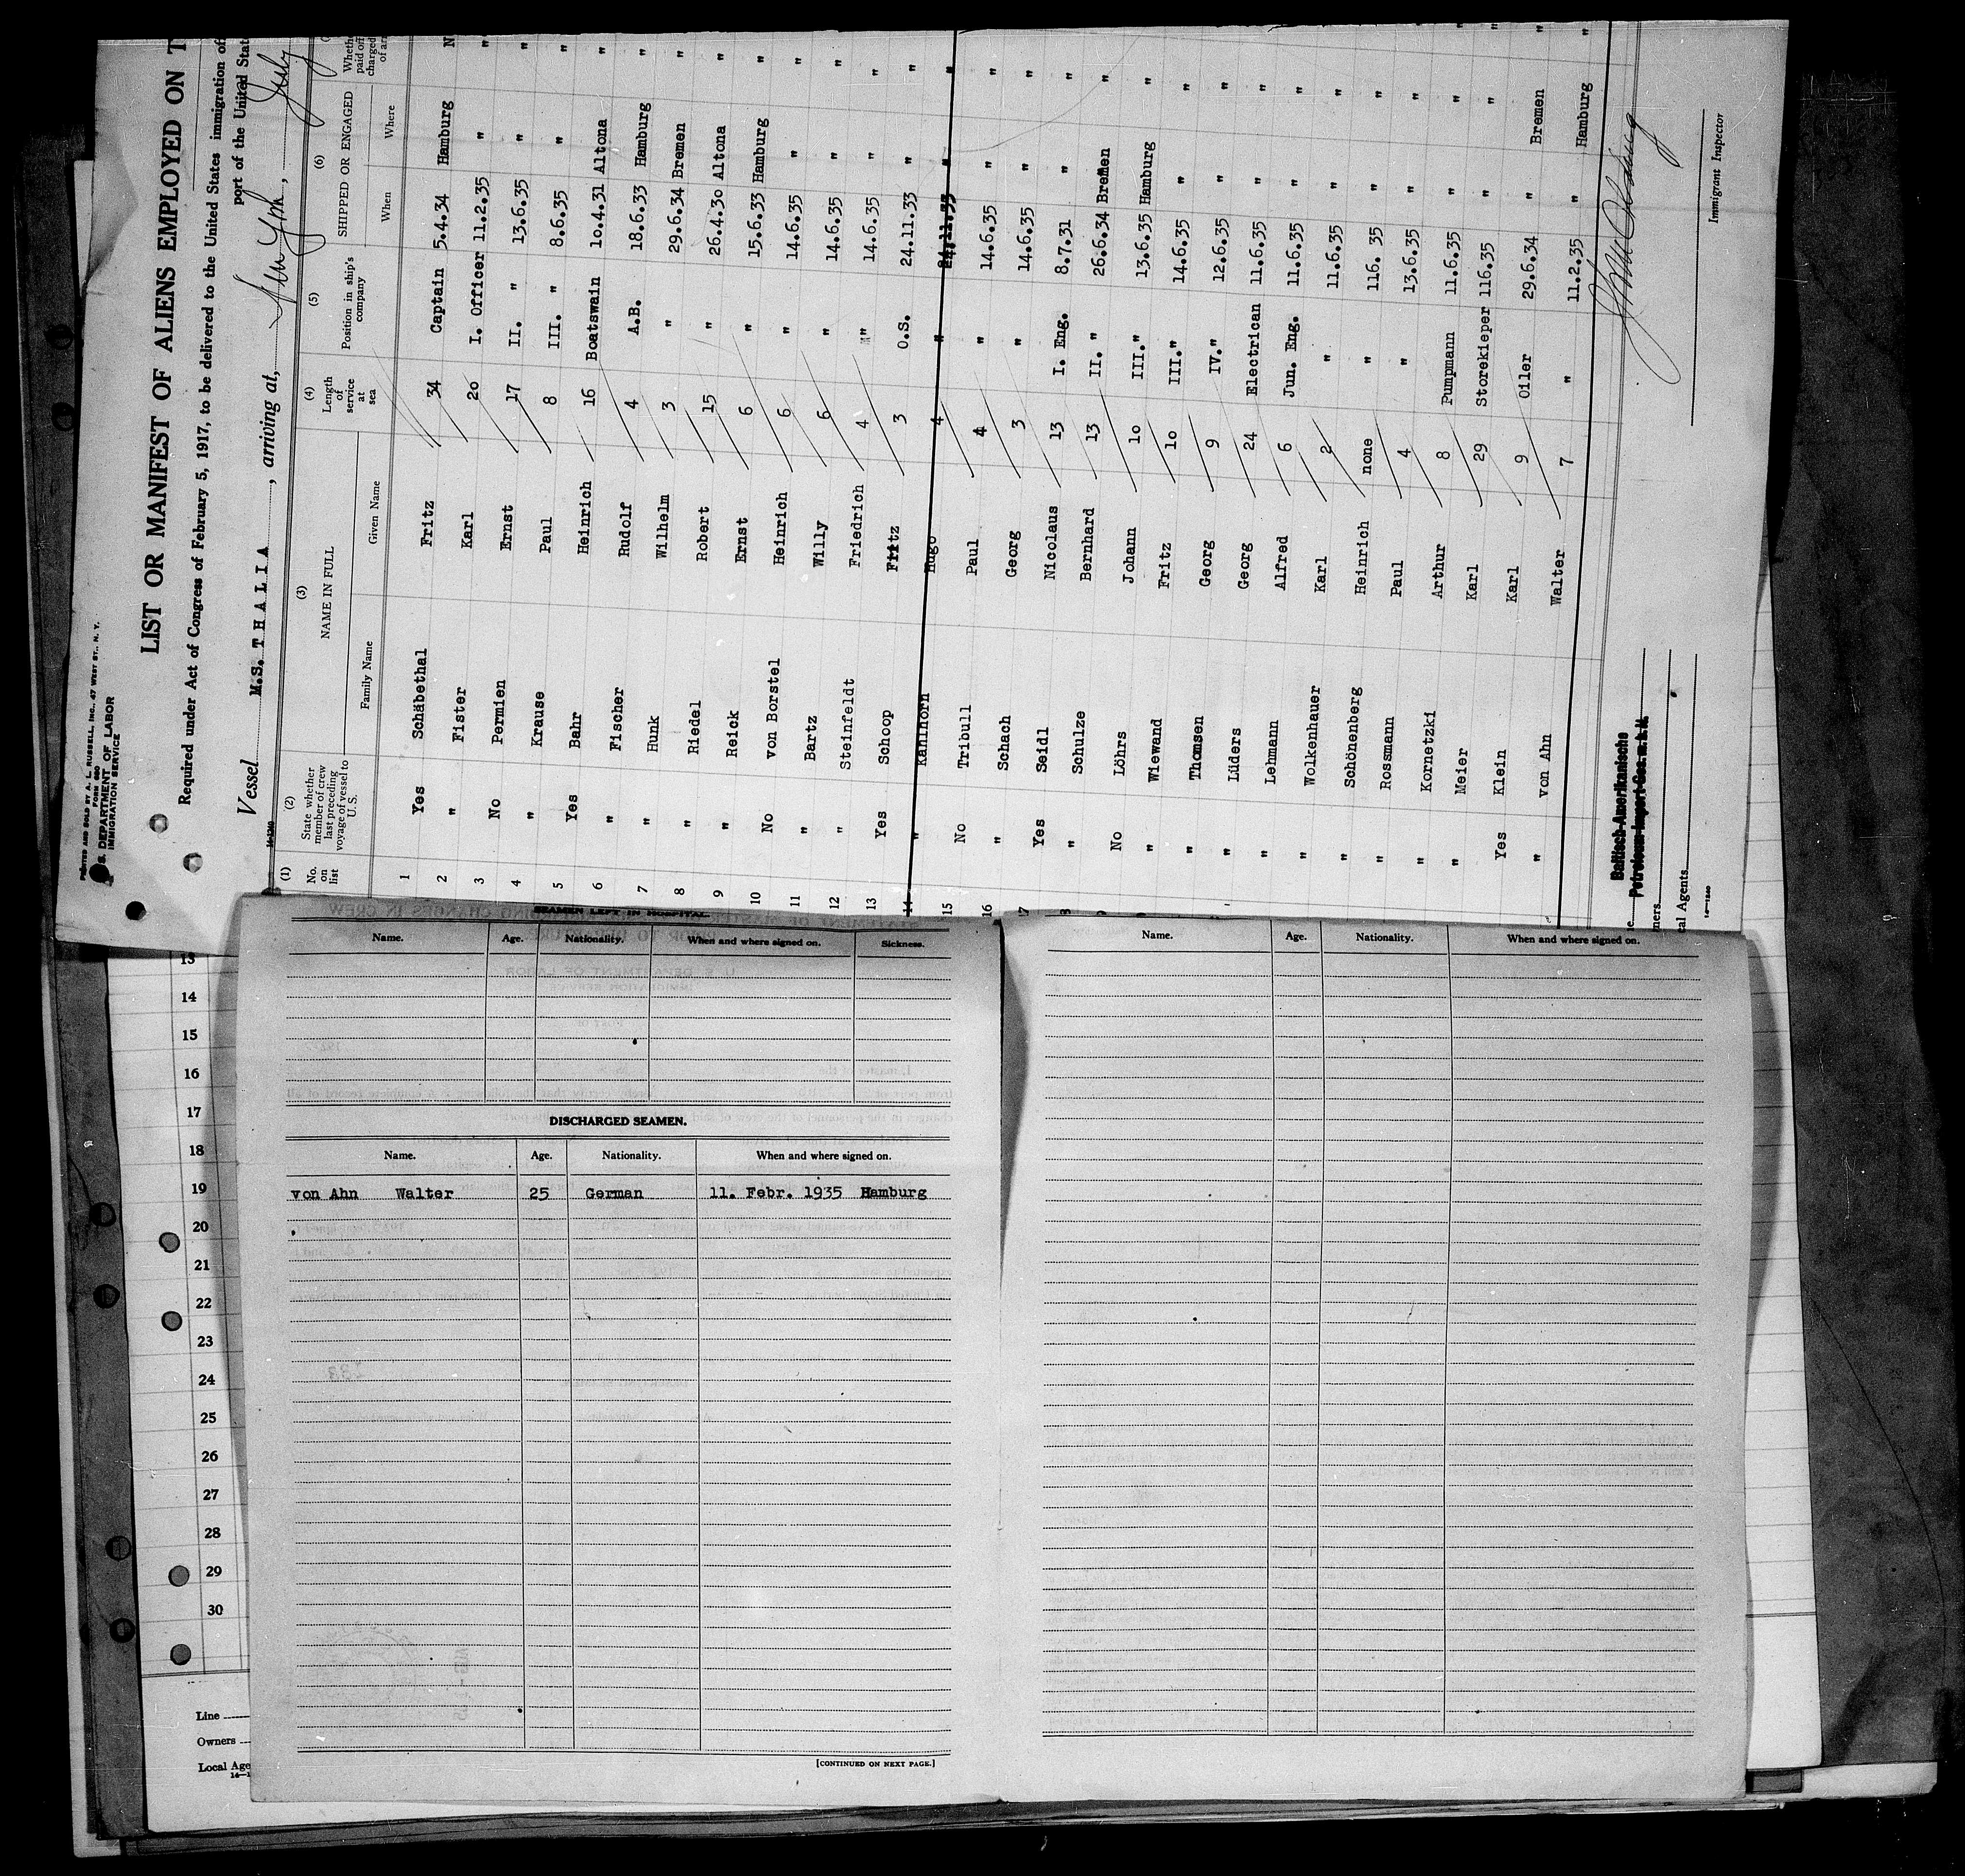 PRINTED AND SOLD BY A. L. RUSSELL, INC., 47 WEST ST., N. Y.
FORM 680
S. DEPARTMENT OF LABOR
IMMIGRATION SERVICE
LIST OR MANIFEST OF ALIENS EMPLOYED ON T
Required under Act of Congress of February 5, 1917, to be delivered to the United States immigration of
port of the United State
Vessel M.S. THALIA, arriving at, New York, July
(1) (2) (3) (4) (5) (6)
No. on list State whether member of crew last preceding voyage of vessel to U.S. NAME IN FULL Length of service at sea Position in ship's company SHIPPED OR ENGAGED
Family Name Given Name When Where
1 Yes Schäbethal Fritz 34 Captain 5.4.34 Hamburg N
2 " Fister Karl 20 I. Officer 11.2.35 " "
3 No Permien Ernst 17 II. " 13.6.35 " "
4 " Krause Paul 8 III. " 8.6.35 " "
5 Yes Bahr Heinrich 16 Boatswain 10.4.31 Altona "
6 " Fischer Rudolf 4 A.B. 18.6.33 Hamburg "
7 " Hunk Wilhelm 3 " 29.6.34 Bremen "
8 " Riedel Robert 15 " 26.4.30 Altona "
9 " Reick Ernst 6 " 15.6.33 Hamburg "
10 No von Borstel Heinrich 6 " 14.6.35 " "
11 " Bartz Willy 6 " 14.6.35 " "
12 " Steinfeldt Friedrich 4 " 14.6.35 " "
13 Yes Schoop Fritz 3 O.S. 24.11.33 " "
14 " Kahlhorn Hugo 4 " 24.11.33 " "
15 No Tribull Paul 4 " 14.6.35 " "
16 " Schach Georg 3 " 14.6.35 " "
7 Yes Seidl Nicolaus 13 I. Eng. 8.7.31 " "
8 " Schulze Bernhard 13 II. " 26.6.34 Bremen "
No Löhrs Johann 10 III." 13.6.35 Hamburg "
" Wiewand Fritz 10 III." 14.6.35 " "
" Thomsen Georg 9 IV." 12.6.35 " "
" Lüders Georg 24 Electrican 11.6.35 " "
" Lehmann Alfred 6 Jun. Eng. 11.6.35 " "
" Wolkenhauer Karl 2 " 11.6.35 " "
" Schönenberg Heinrich none " 116. 35 " "
" Rossmann Paul 4 " 13.6.35 " "
" Kornetzki Arthur 8 Pumpmann 11.6.35 " "
" Meier Karl 29 Storekieper 116.35 " "
Yes Klein Karl 9 Oiler 29.6.34 " Bremen "
" von Ahn Walter 7 " 11.2.35 " Hamburg "
Baltisch-Amerikanische
Petroleum-Import-Ges. m. b. H.
Immigrant Inspector
ners
cal Agents
SEAMEN LEFT IN HOSPITAL.
Name. Age. Nationality. When and where signed on. Sickness.
DISCHARGED SEAMEN.
Name. Age. Nationality. When and where signed on.
von Ahn Walter 25 German 11. Febr. 1935 Hamburg
[CONTINUED ON NEXT PAGE.]
Name. Age. Nationality. When and where signed on.
13
14
15
16
17
18
19
20
21
22
23
24
25
26
27
28
29
30
Line
Owners
Local Age